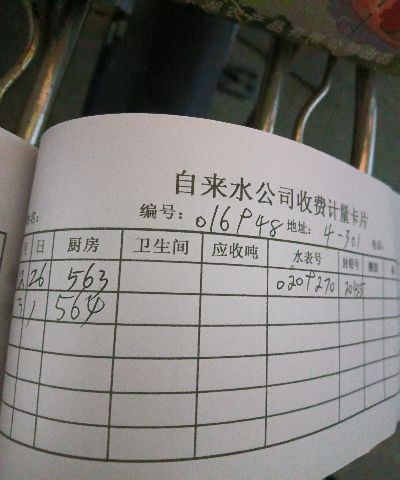 自来水公司收费计量卡片
编号: 016948 地址: 4-301 电话:
月 日 厨房 卫生间 应收吨 水表号
26 563 0209270
3 1 564